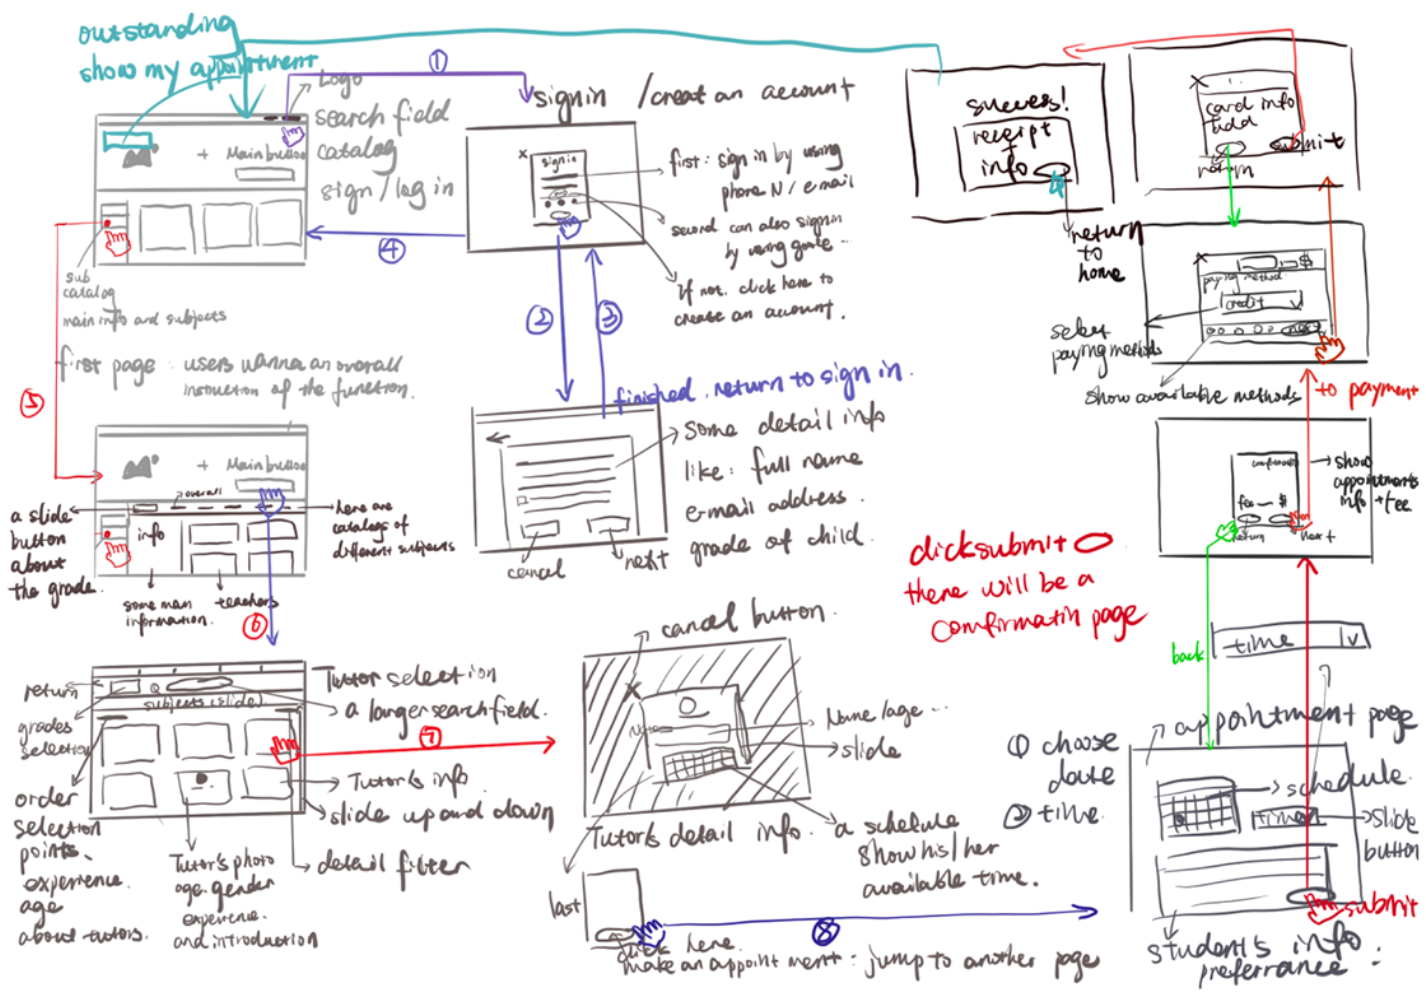 outstanding
show my appointment
Logo
search field
catalog
sign / log in
+ Main button
sub
catalog
main info and subjects
first page : users wanna an overall
instruction of the function.
①
signin / creat an account
x
sign in
first : sign in by using
phone N / e-mail
second can also signin
by using goole ...
If not. click here to
create an account.
④
②
③
finished. return to sign in.
some detail info
like : full name
e-mail address.
grade of child.
cancel
next
⑤
+ Main button
overall
info
a slide
button
about
the grade.
here are
catalogs of
different subjects
some main
information.
teachers
⑥
return
grades
selection
Q
subjects (slide)
Tutor selection
a longer search field.
order
selection
points.
experience.
age
about tutors.
Tutor's info
slide up and down
detail filter
Tutor's photo
age. gender
experience.
and introduction
⑦
cancel button.
x
Name/age ...
slide
Tutor's detail info.
a schelule
show his/her
available time.
last
click here.
make an appointment : jump to another page
⑧
① choose
date
② time.
appointment page
schedule.
time
slide
button
submit
student's info.
preferrance.
time v
back
click submit
there will be a
comfirmatin page
show
appointments
info + fee
fee — $
return
next
to payment
x
$
paying method
credit v
select
paying methods
show available methods
x
card info
add
submit
return
success!
receipt
+
info
return
to
home